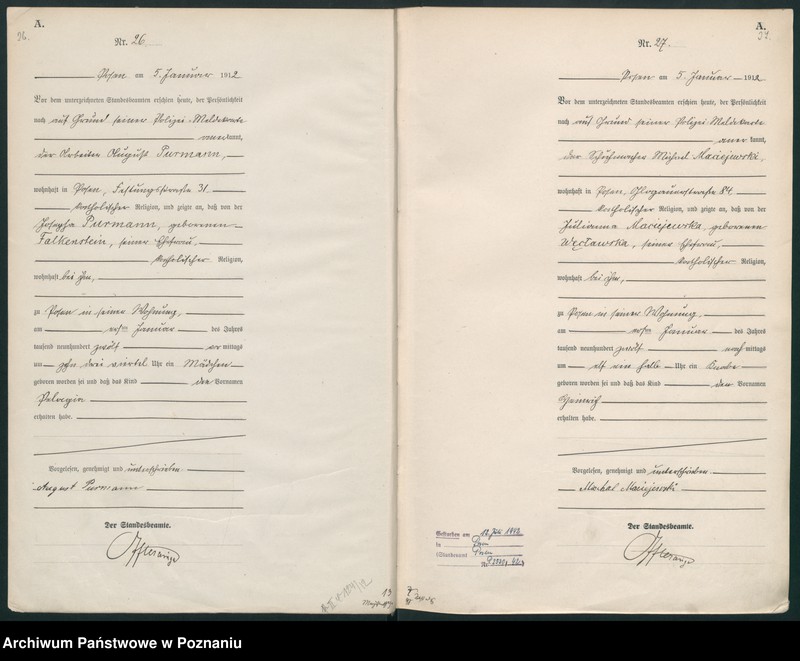 A.
Nr. 26.
Posen am 5. Januar 1912
Vor dem unterzeichneten Standesbeamten erschien heute, der Persönlichkeit
nach auf Grund seiner Polizei-Meldekarte
anerkannt,
der Arbeiter August Purmann,
wohnhaft in Posen, Festungsstraße 31.
katholischer Religion, und zeigte an, daß von der
Josepha Purmann, geborenen
Falkenstein, seiner Ehefrau,
katholischer Religion,
wohnhaft bei ihm,
zu Posen in seiner Wohnung,
am ersten Januar des Jahres
tausend neunhundert zwölf vormittags
um zehn drei viertel Uhr ein Mädchen
geboren worden sei und daß das Kind den Vornamen
Pelagia
erhalten habe.
Vorgelesen, genehmigt und unterschrieben.
August Purmann
Der Standesbeamte.
A.
Nr. 27.
Posen am 5. Januar 1912
Vor dem unterzeichneten Standesbeamten erschien heute, der Persönlichkeit
nach auf Grund seiner Polizei-Meldekarte
anerkannt,
der Schuhmacher Michael Maciejewski,
wohnhaft in Posen, Glogauerstraße 84
katholischer Religion, und zeigte an, daß von der
Julianna Maciejewska, geborenen
Węcławska, seiner Ehefrau,
katholischer Religion,
wohnhaft bei ihm,
zu Posen in seiner Wohnung,
am ersten Januar des Jahres
tausend neunhundert zwölf nachmittags
um elf ein halb Uhr ein Knabe
geboren worden sei und daß das Kind den Vornamen
Heinrich
erhalten habe.
Vorgelesen, genehmigt und unterschrieben.
Michał Maciejewski
Der Standesbeamte.
Gestorben am
in Posen
(Standesamt Posen
Archiwum Państwowe w Poznaniu